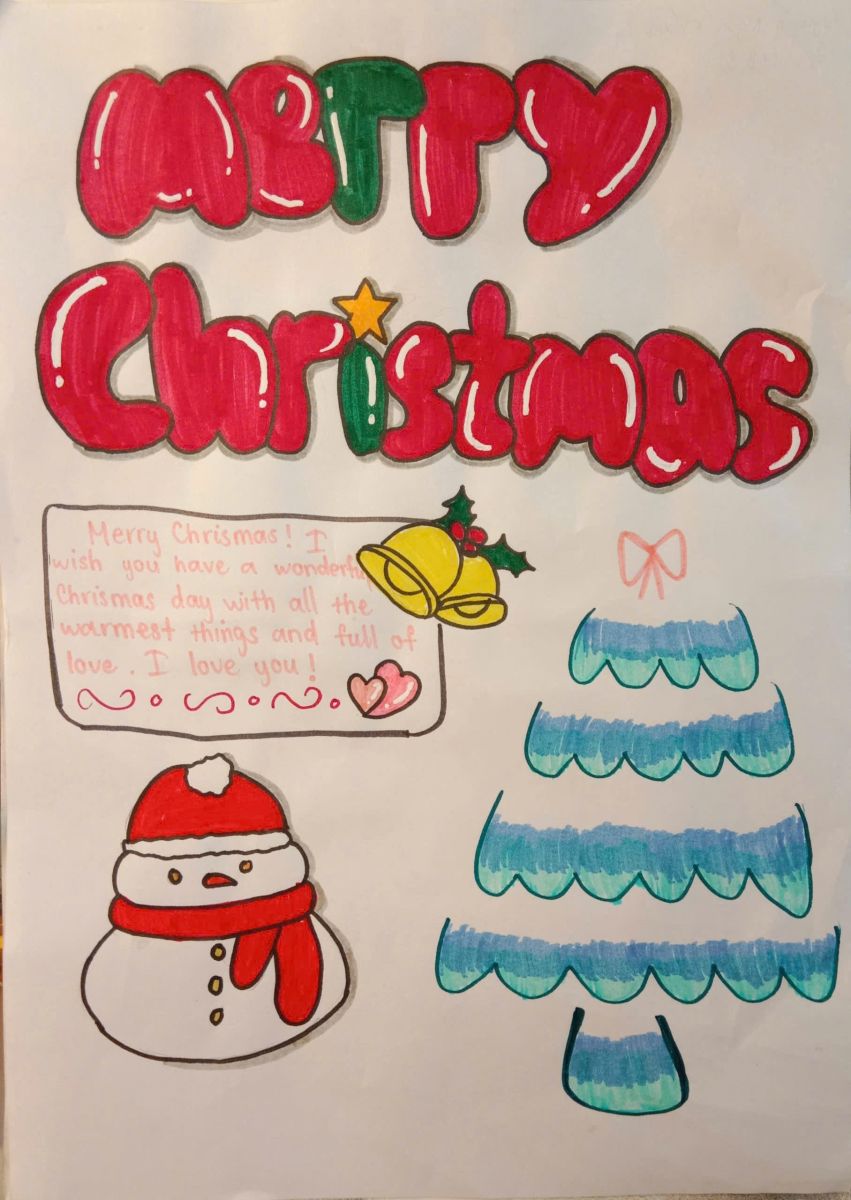 Merry
Christmas
Merry Chrismas! I
wish you have a wonderful
Chrismas day with all the
warmest things and full of
love. I love you!